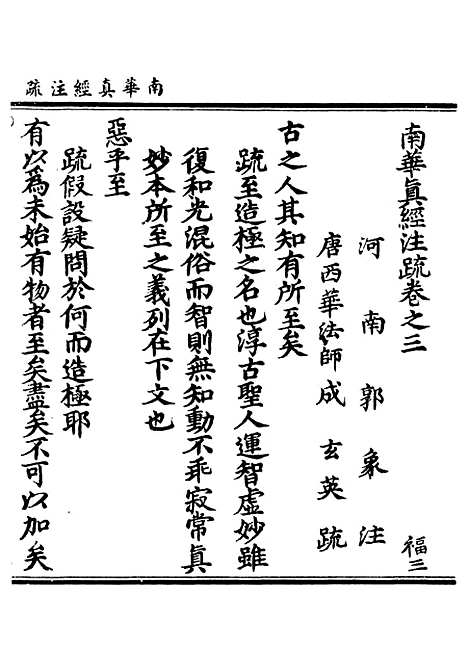 南華真經注疏
南華眞經注疏卷之三 福三
河南郭象注
唐西華法師成玄英疏
古之人其知有所至矣
疏至造極之名也淳古聖人運智虛妙雖
復和光混俗而智則無知動不乖寂常眞
妙本所至之義列在下文也
惡乎至
疏假設疑問於何而造極耶
有以為未始有物者至矣盡矣不可以加矣